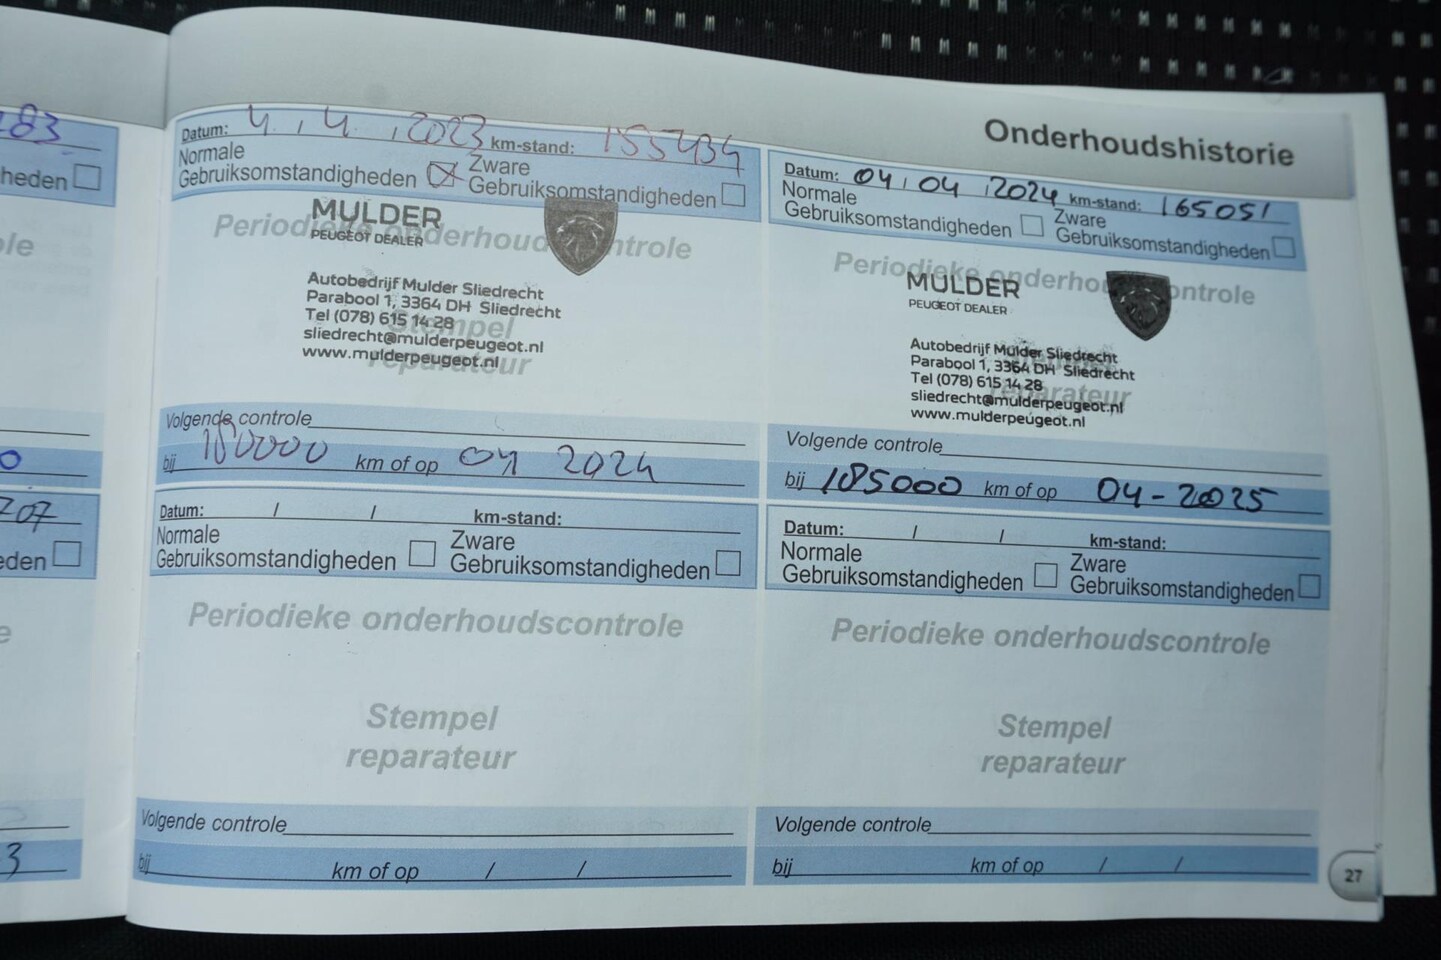 Onderhoudshistorie
83
heden
0
207
eden
3
Datum: 4 . 4 . 2023 km-stand: 155434
Normale
Gebruiksomstandigheden
Zware
Gebruiksomstandigheden
Periodieke onderhoudscontrole
MULDER
PEUGEOT DEALER
Autobedrijf Mulder Sliedrecht
Parabool 1, 3364 DH Sliedrecht
Tel (078) 615 14 28
sliedrecht@mulderpeugeot.nl
www.mulderpeugeot.nl
Stempel
reparateur
Volgende controle
bij 180000 km of op 04 2024
Datum: / / km-stand:
Normale
Gebruiksomstandigheden
Zware
Gebruiksomstandigheden
Periodieke onderhoudscontrole
Stempel
reparateur
Volgende controle
bij km of op / /
Datum: 04 / 04 / 2024 km-stand: 165051
Normale
Gebruiksomstandigheden
Zware
Gebruiksomstandigheden
Periodieke onderhoudscontrole
MULDER
PEUGEOT DEALER
Autobedrijf Mulder Sliedrecht
Parabool 1, 3364 DH Sliedrecht
Tel (078) 615 14 28
sliedrecht@mulderpeugeot.nl
www.mulderpeugeot.nl
reparateur
Volgende controle
bij 185000 km of op 04-2025
Datum: / / km-stand:
Normale
Gebruiksomstandigheden
Zware
Gebruiksomstandigheden
Periodieke onderhoudscontrole
Stempel
reparateur
Volgende controle
bij km of op / /
27